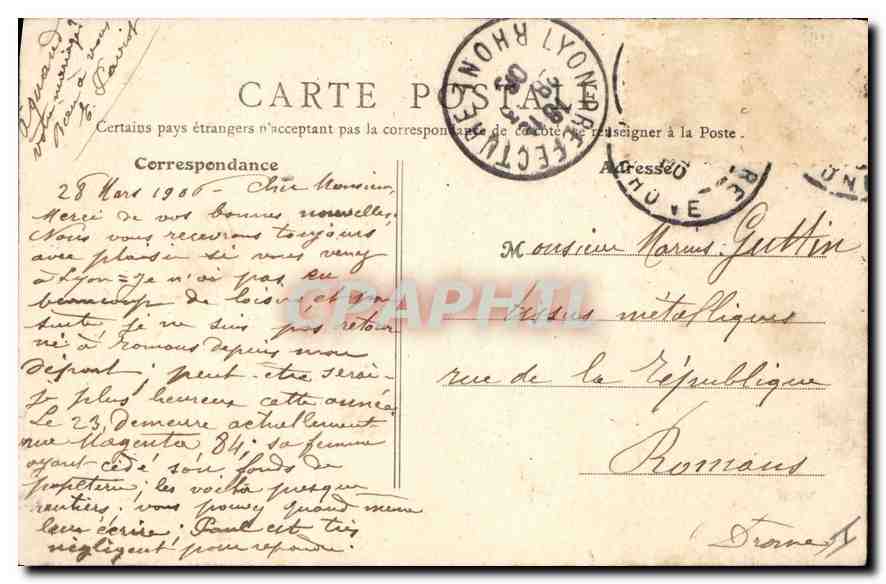 CARTE POSTALE
Certains pays étrangers n'acceptent pas la correspondance de ce côté, se renseigner à la Poste.
Correspondance
Adresse
LYON-PREFECTURE RHONE
RHONE
28 Mars 1906 - Cher Monsieur,
Merci de vos bonnes nouvelles.
Nous vous recevrons toujours
avec plaisir si vous venez
à Lyon = Je n'ai pas eu
beaucoup de loisir et
suite, je ne suis pas retour
né à Romans depuis mon
départ; peut-être serai-
je plus heureux cette année.
Le 23, demeure actuellement
rue Magenta 84; sa femme
ayant cédé son fonds de
papeterie; les voilà presque
rentiers; vous pouvez quand même
leur écrire; Paul est très
négligent pour répondre.
à quand
votre mariage?
à vous
E.
Monsieur Marius Guttin
tissus métalliques
rue de la République
Romans
Drome
CPAPHIL